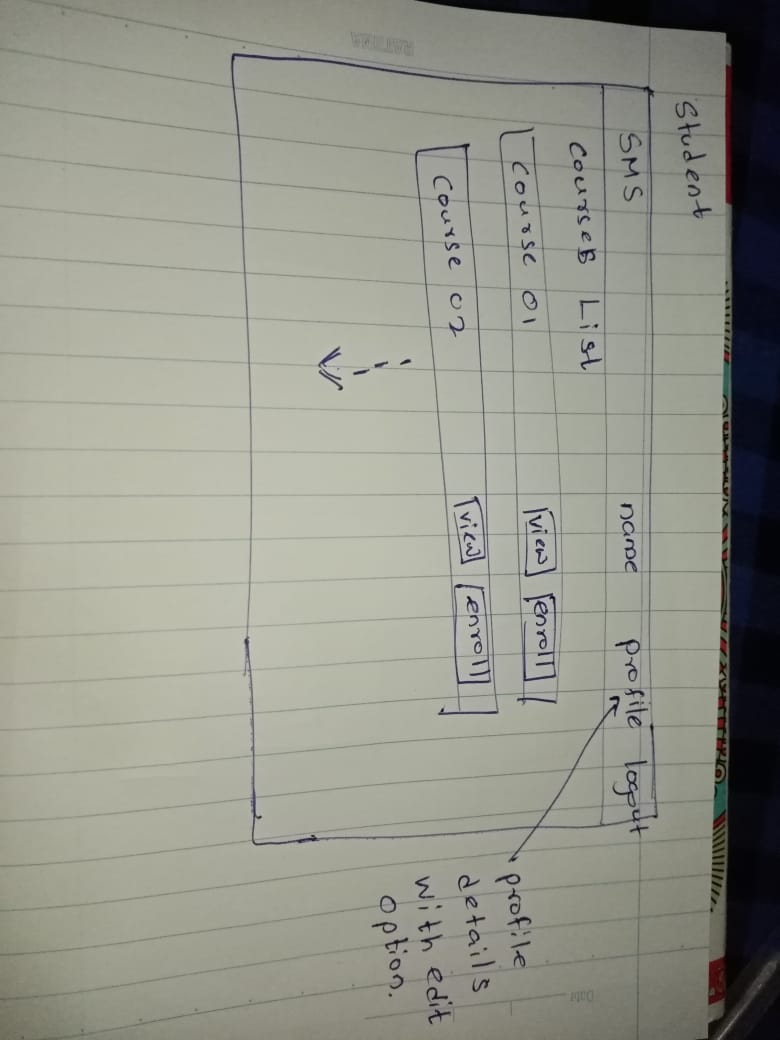 Student
SMS name profile logout
Courses List
Course 01 view enroll
Course 02 view enroll
profile
details
with edit
option.